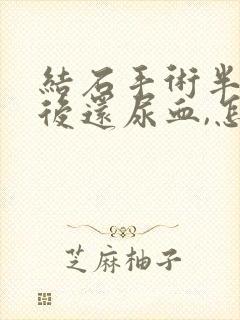 結石手術半
後還尿血,怎
芝麻柚子